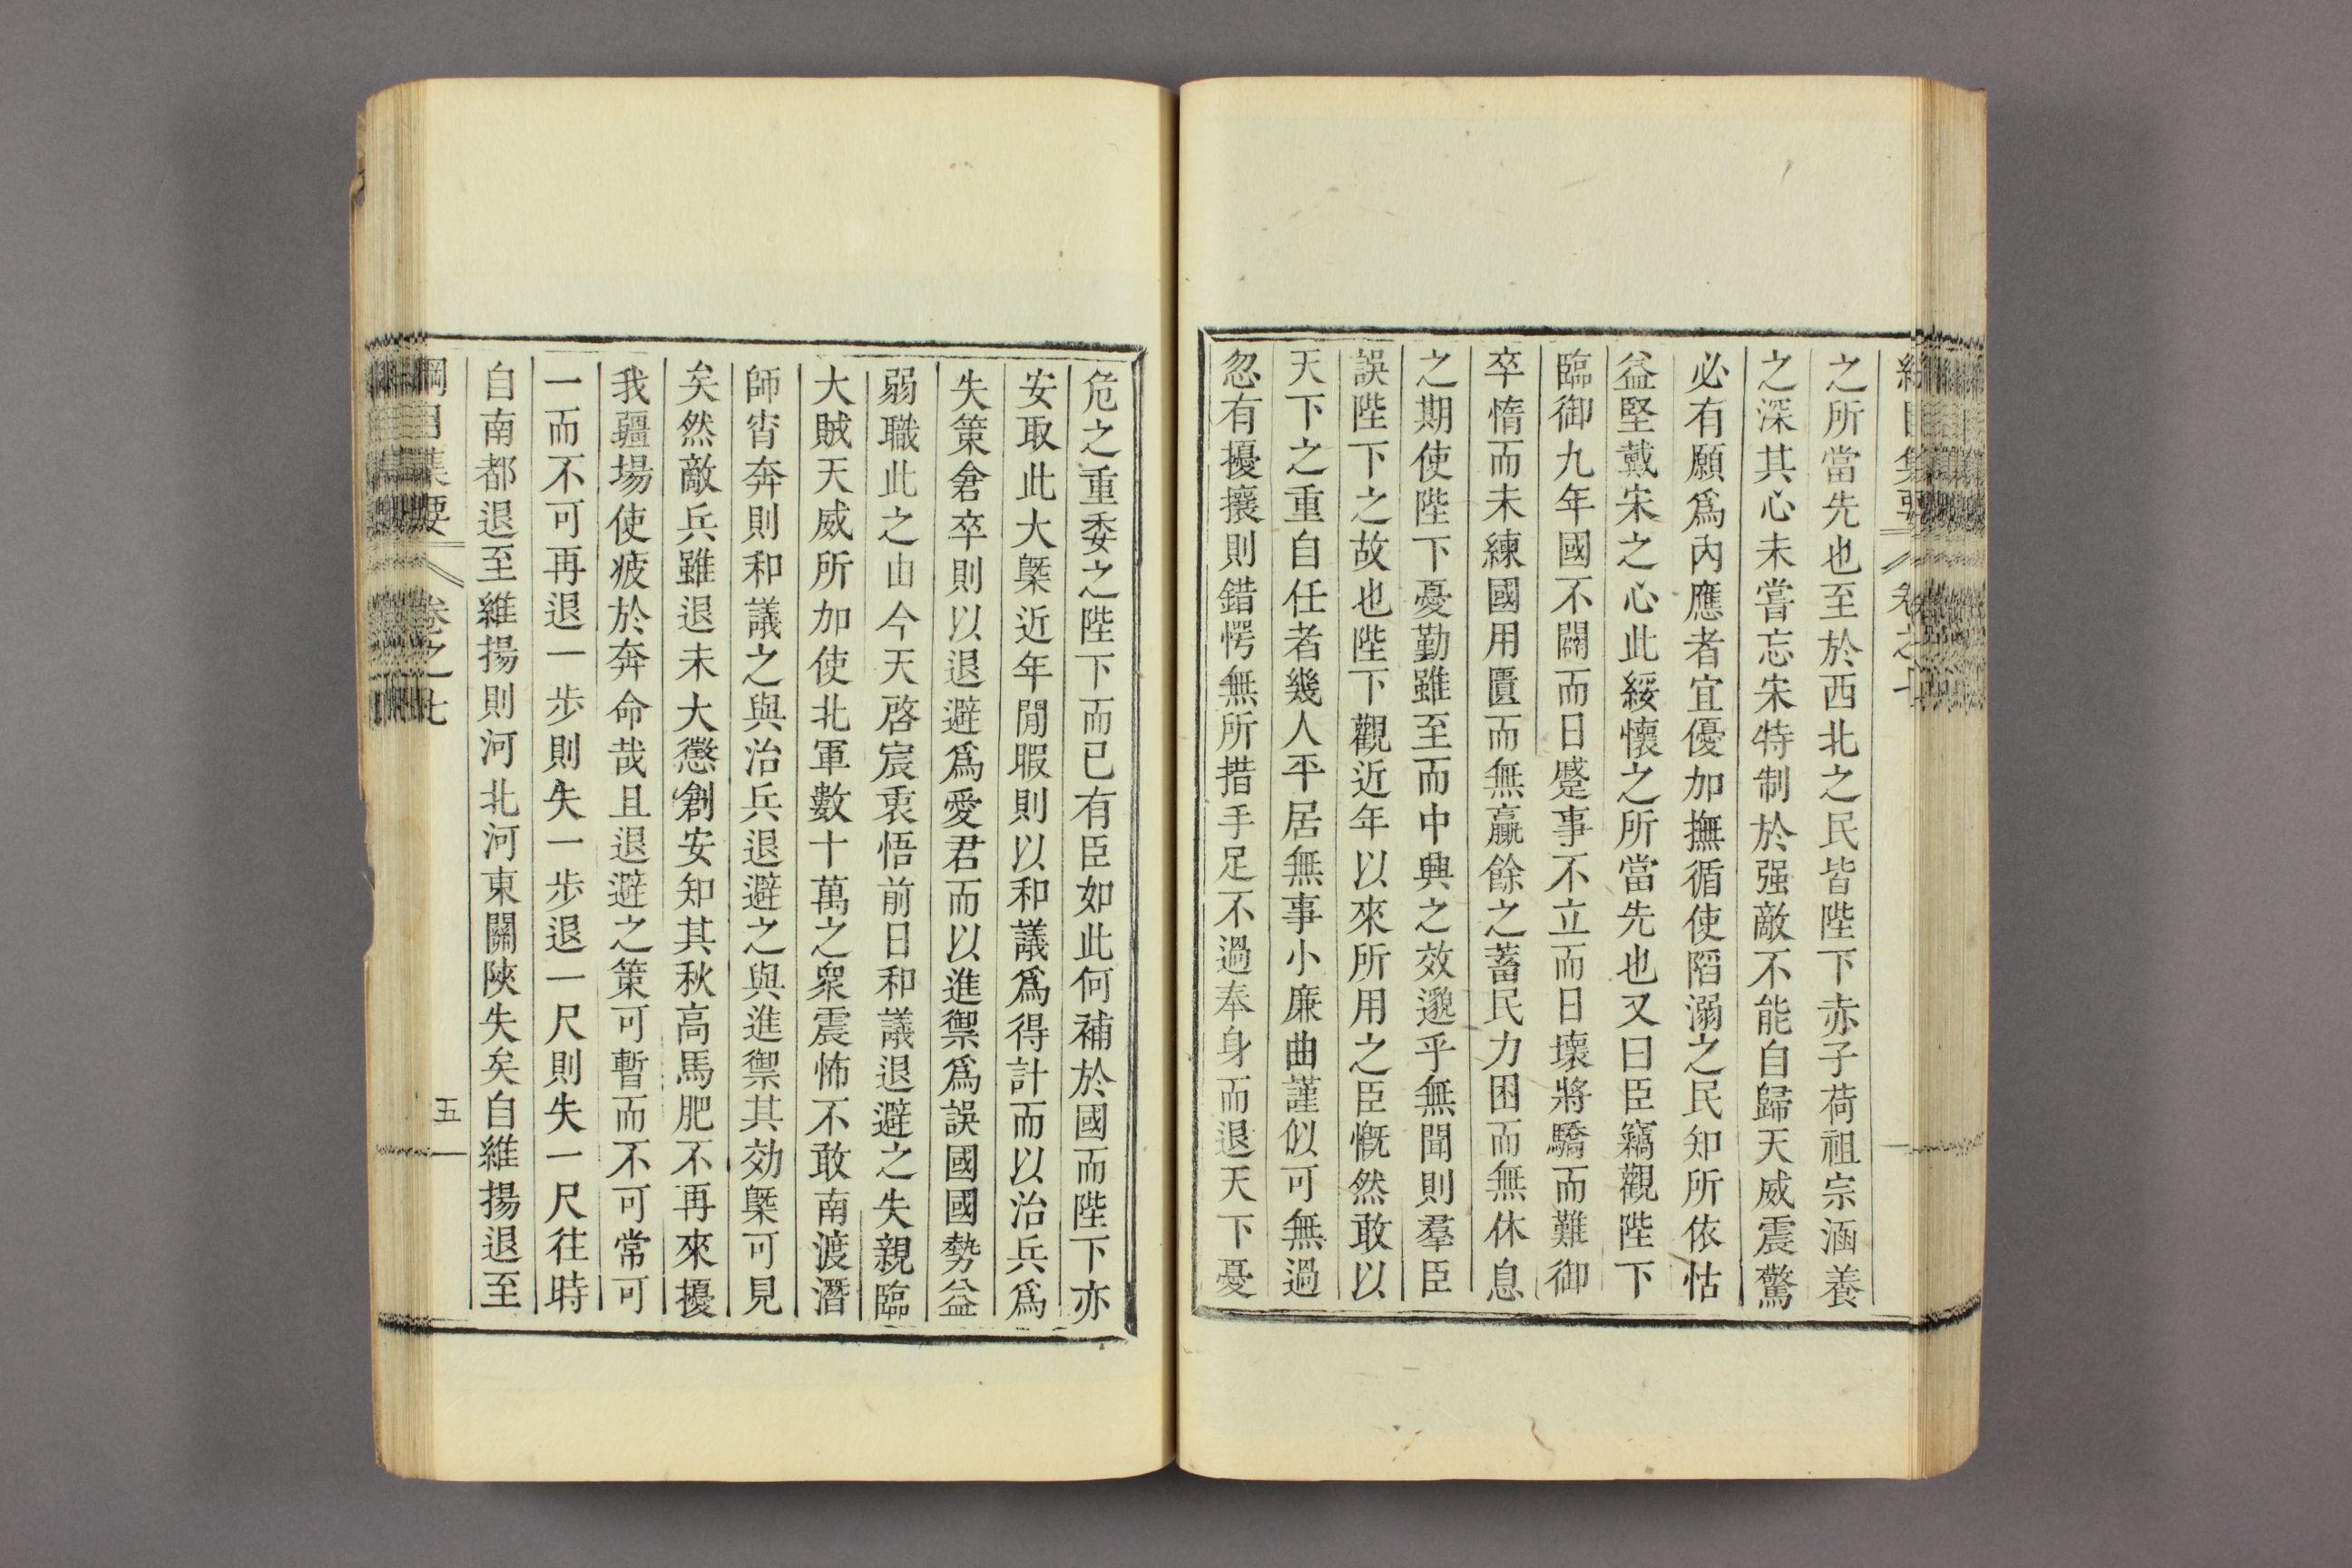 之所當先也至於西北之民皆陛下赤子荷祖宗涵養
之深其心未嘗忘宋特制於强敵不能自歸天威震驚
必有願爲內應者宜優加撫循使陷溺之民知所依怙
益堅戴宋之心此綏懷之所當先也又曰臣竊觀陛下
臨御九年國不闢而日蹙事不立而日壞將驕而難御
卒惰而未練國用匱而無贏餘之蓄民力困而無休息
之期使陛下憂勤雖至而中興之效邈乎無聞則羣臣
誤陛下之故也陛下觀近年以來所用之臣慨然敢以
天下之重自任者幾人平居無事小廉曲謹似可無過
忽有擾攘則錯愕無所措手足不過奉身而退天下憂
危之重委之陛下而已有臣如此何補於國而陛下亦
安取此大槩近年閒暇則以和議爲得計而以治兵爲
失策倉卒則以退避爲愛君而以進禦爲誤國國勢益
弱職此之由今天啓宸衷悟前日和議退避之失親臨
大賊天威所加使北軍數十萬之衆震怖不敢南渡潛
師宵奔則和議之與治兵退避之與進禦其効槩可見
矣然敵兵雖退未大懲創安知其秋高馬肥不再來擾
我疆場使疲於奔命哉且退避之策可暫而不可常可
一而不可再退一步則失一步退一尺則失一尺往時
自南都退至維揚則河北河東關陝失矣自維揚退至
綱目集要 卷之七 五